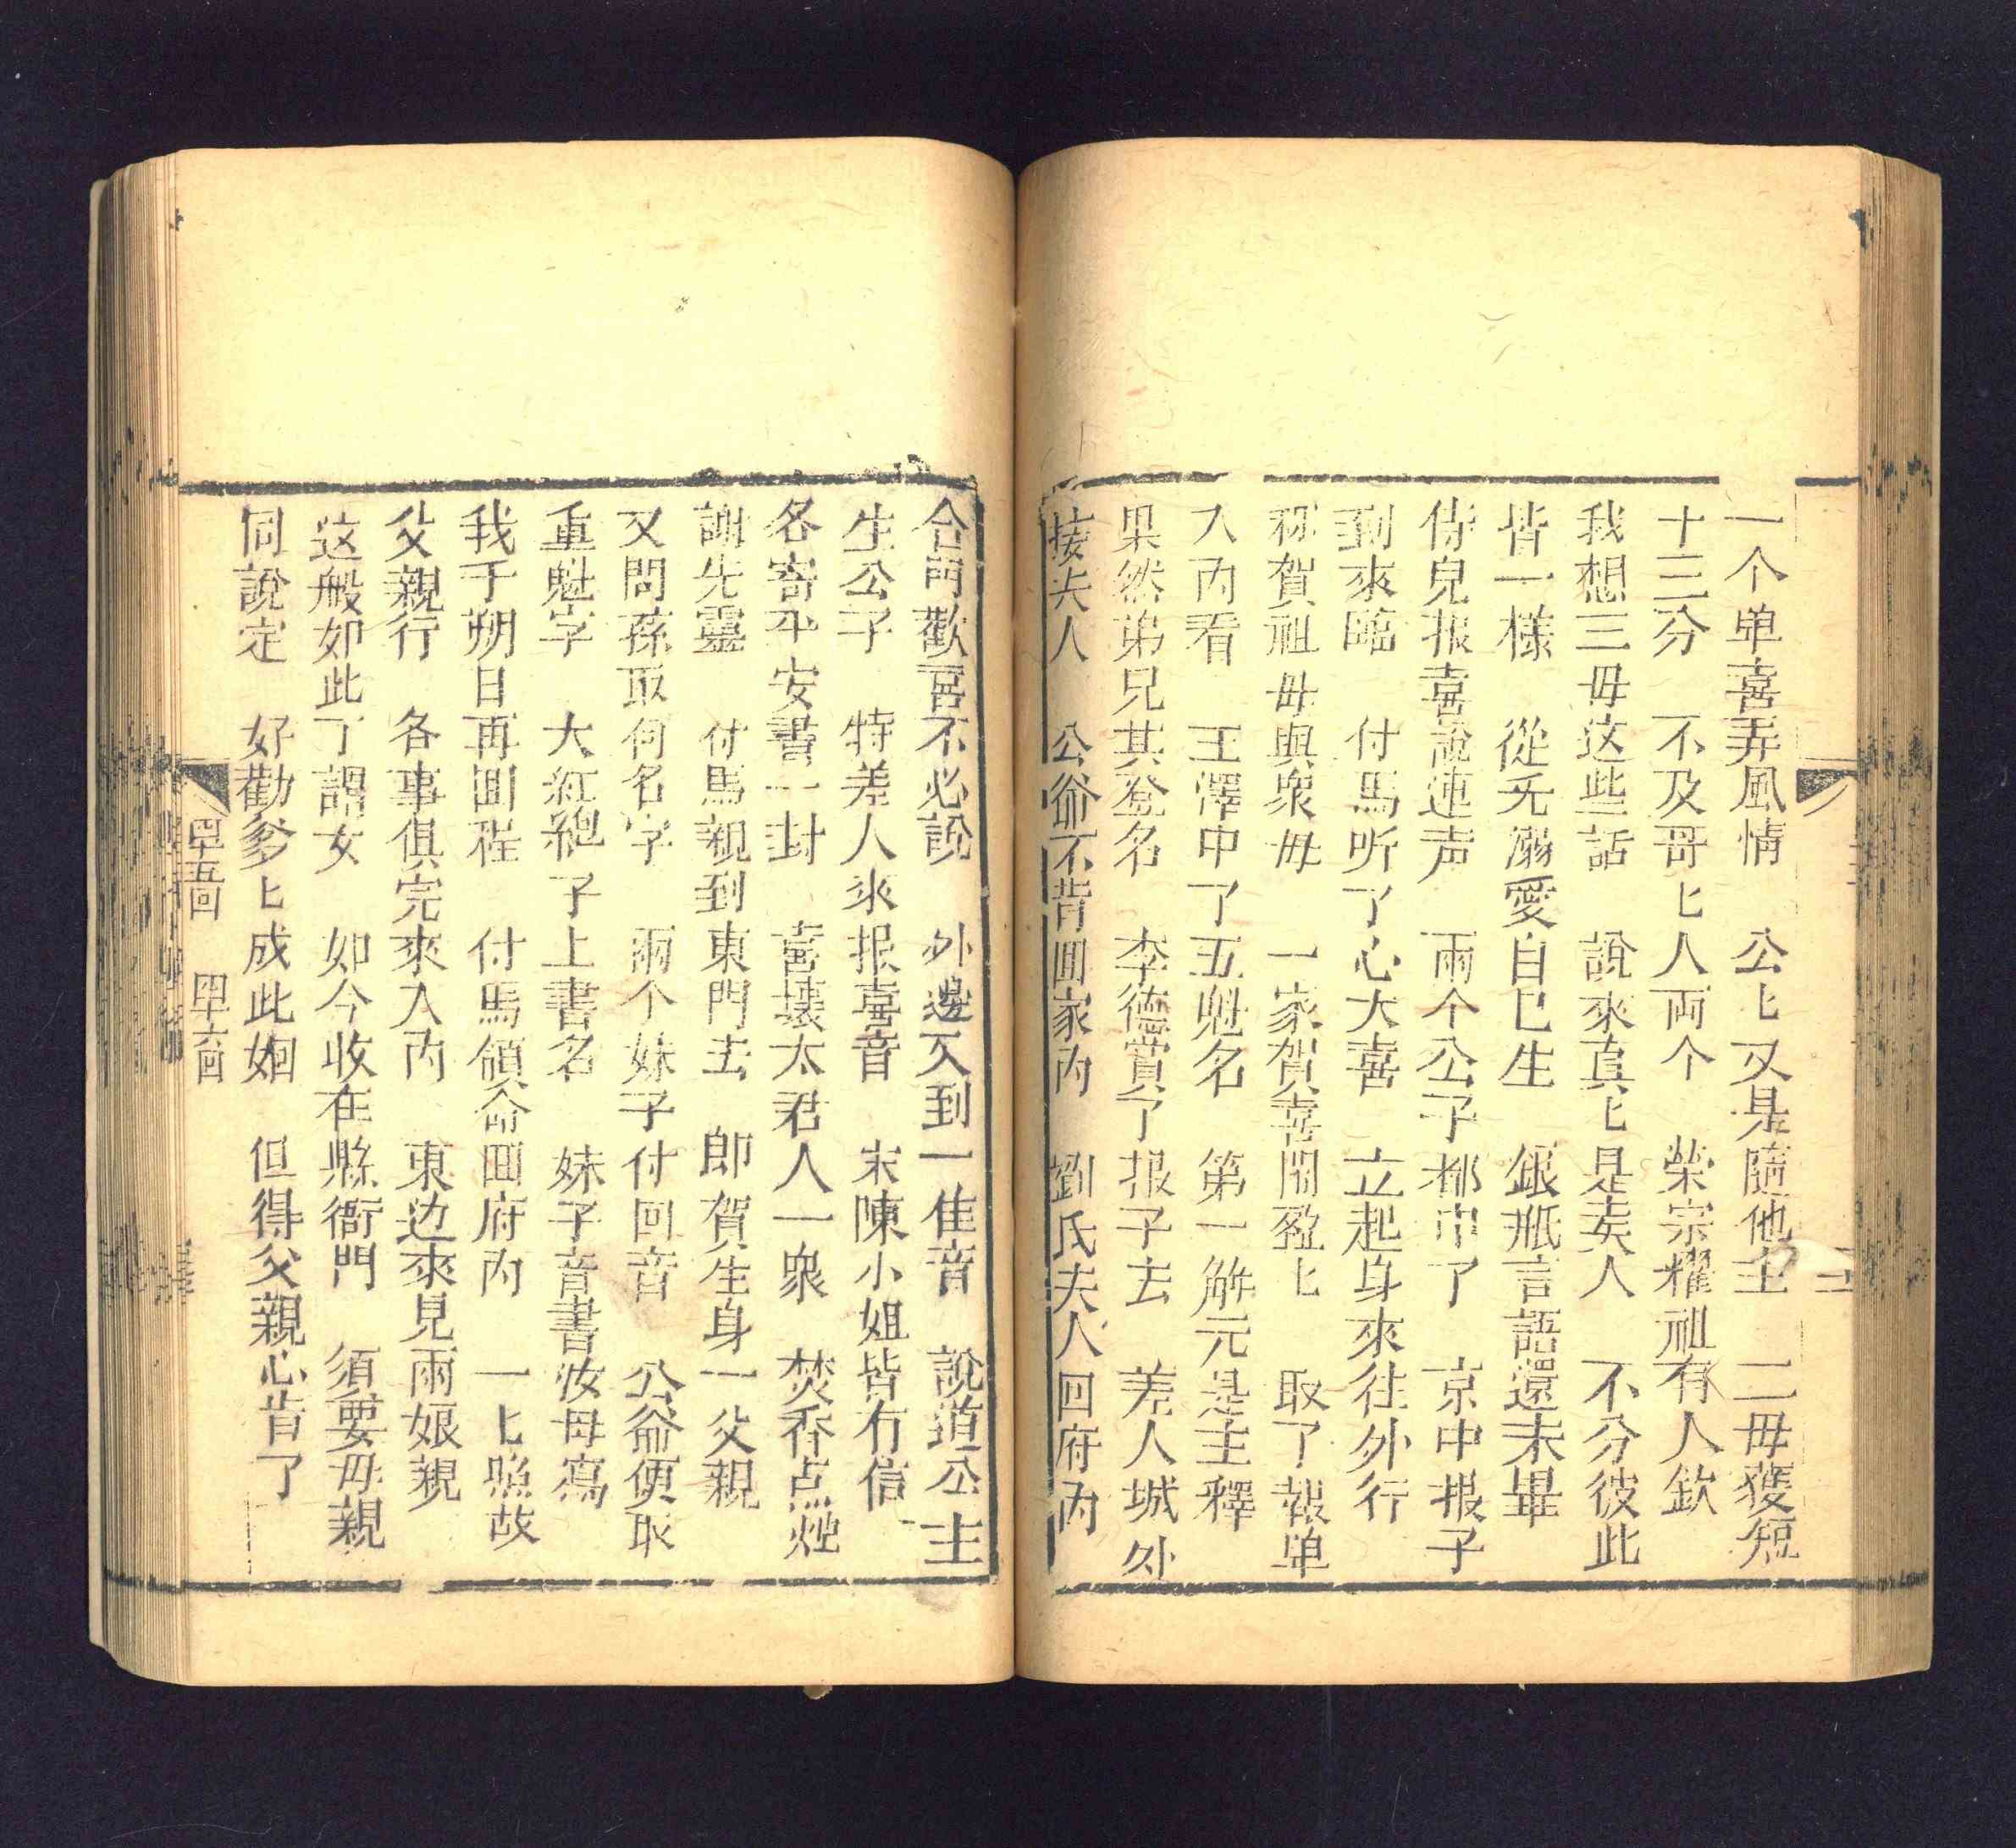 一个单喜弄風情　公〻又是隨他主　二毋獲短
十三分　不及哥〻人両个　榮宗耀祖有人欽
我想三毋这些話　說來真〻是美人　不分彼此
皆一樣　從无溺愛自已生　銀瓶言語還未畢
侍兒报喜說連声　兩个公子都中了　京中报子
到來臨　付馬听了心大喜　立起身來往外行
称賀祖毋與衆毋　一家賀喜閙盈〻　取了報单
入內看　王澤中了五魁名　第一觧元是主釋
果然弟兄其登名　李德賞了报子去　差人城外
接夫人　公爺不肯囬家內　劉氏夫人回府內
合門歡喜不必說　外邊又到一隹音　說道公主
生公子　特差人來报喜音　末陳小姐皆有信
各寄平安書一封　喜壊太君人一衆　焚香点烛
謝先靈　付馬親到東門去　即賀生身一父親
又問孫取何名字　兩个妹子付回音　公爺便取
重魁字　大紅絶子上書名　妹子音書汝母寫
我于朔日再囬程　付馬領命囬府內　一〻照故
父親行　各事俱完來入內　東边來見兩娘親
这般如此了謂女　如今收在縣衙門　須要毋親
同說定　好勸爹〻成此姻　但得父親心肯了
四十五回　四十六回